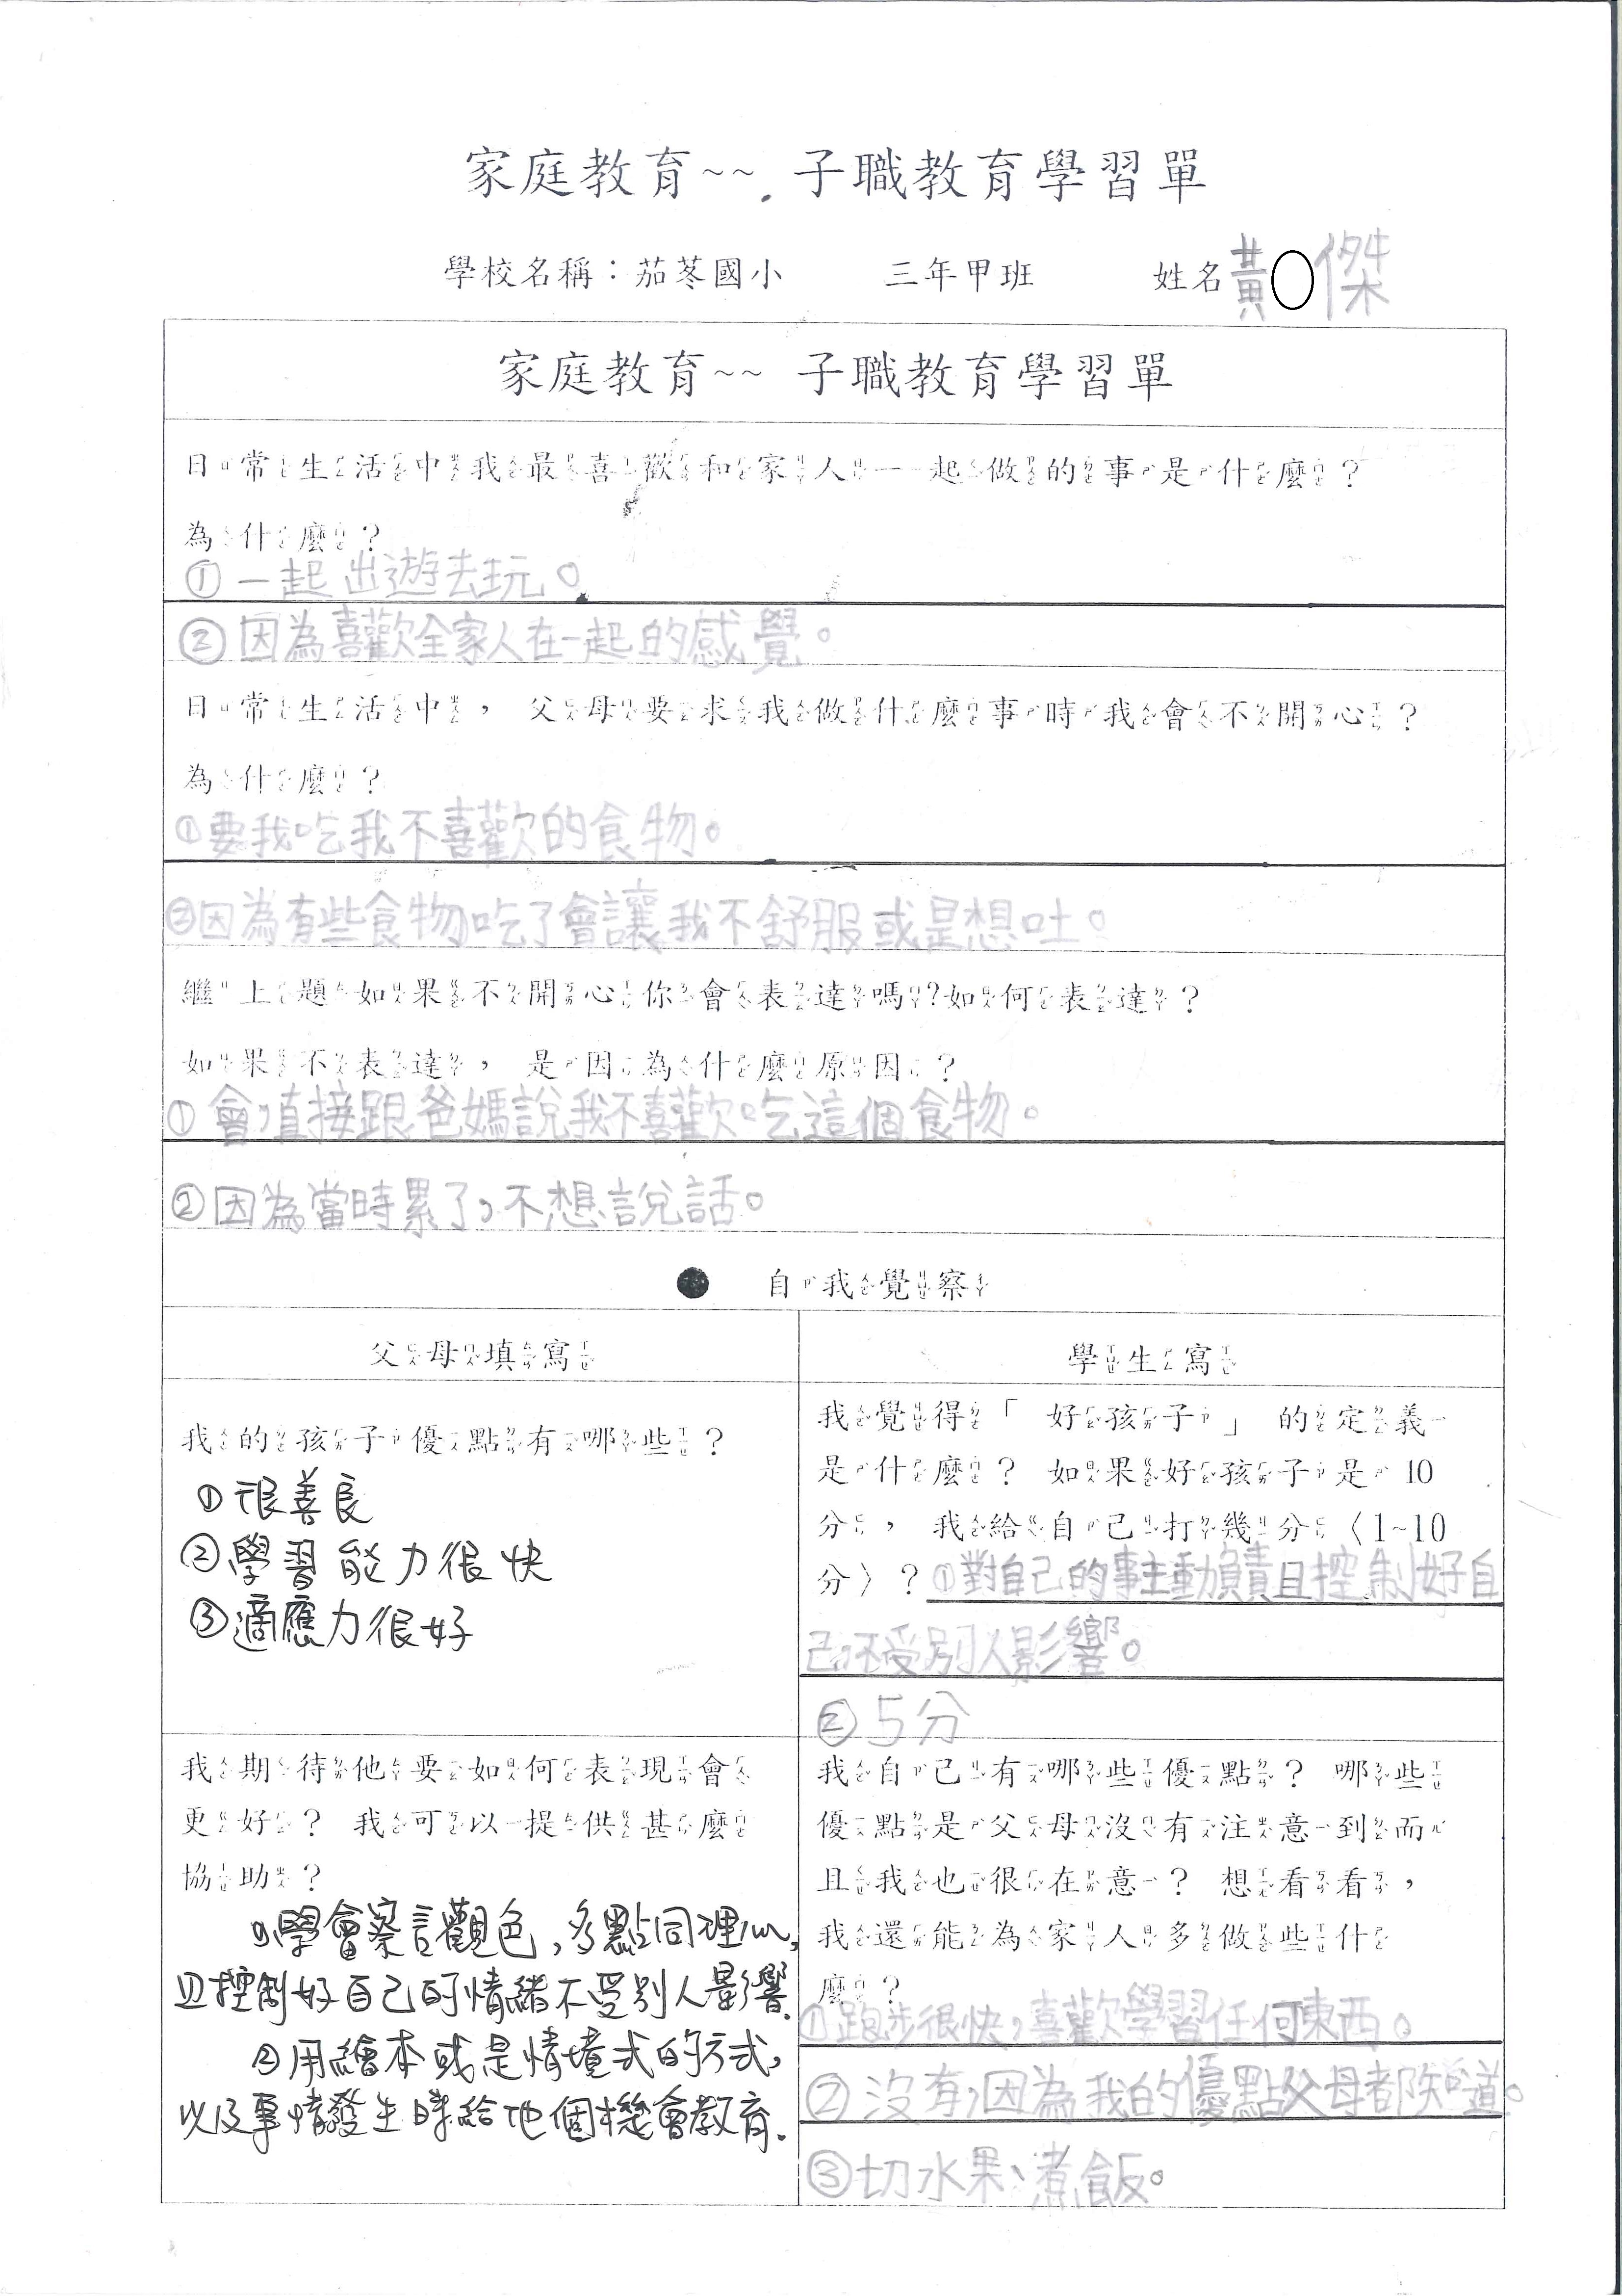 家庭教育~~ 子職教育學習單
學校名稱：茄苳國小 三年甲班 姓名黃○傑
家庭教育~~ 子職教育學習單
日常生活中我最喜歡和家人一起做的事是什麼？
為什麼？
①一起出遊去玩。
②因為喜歡全家人在一起的感覺。
日常生活中，父母要求我做什麼事時我會不開心？
為什麼？
①要我吃我不喜歡的食物。
②因為有些食物吃了會讓我不舒服或是想吐。
繼上題如果不開心你會表達嗎?如何表達？
如果不表達，是因為什麼原因？
①會，直接跟爸媽說我不喜歡吃這個食物。
②因為當時累了，不想說話。
● 自我覺察
父母填寫
我的孩子優點有哪些？
①很善良
②學習能力很快
③適應力很好
我期待他要如何表現會
更好？我可以提供甚麼
協助？
①學會察言觀色，多點同理心，
且控制好自己的情緒不受別人影響.
②用繪本或是情境式的方式，
以及事情發生時給他個機會教育.
學生寫
我覺得「好孩子」的定義
是什麼？如果好孩子是10
分，我給自己打幾分〈1~10
分〉？①對自己的事主動負責且控制好自
己，不受別人影響。
②5分
我自己有哪些優點？哪些
優點是父母沒有注意到而
且我也很在意？想看看，
我還能為家人多做些什
麼？
①跑步很快，喜歡學習任何東西。
②沒有，因為我的優點父母都知道。
③切水果、煮飯。